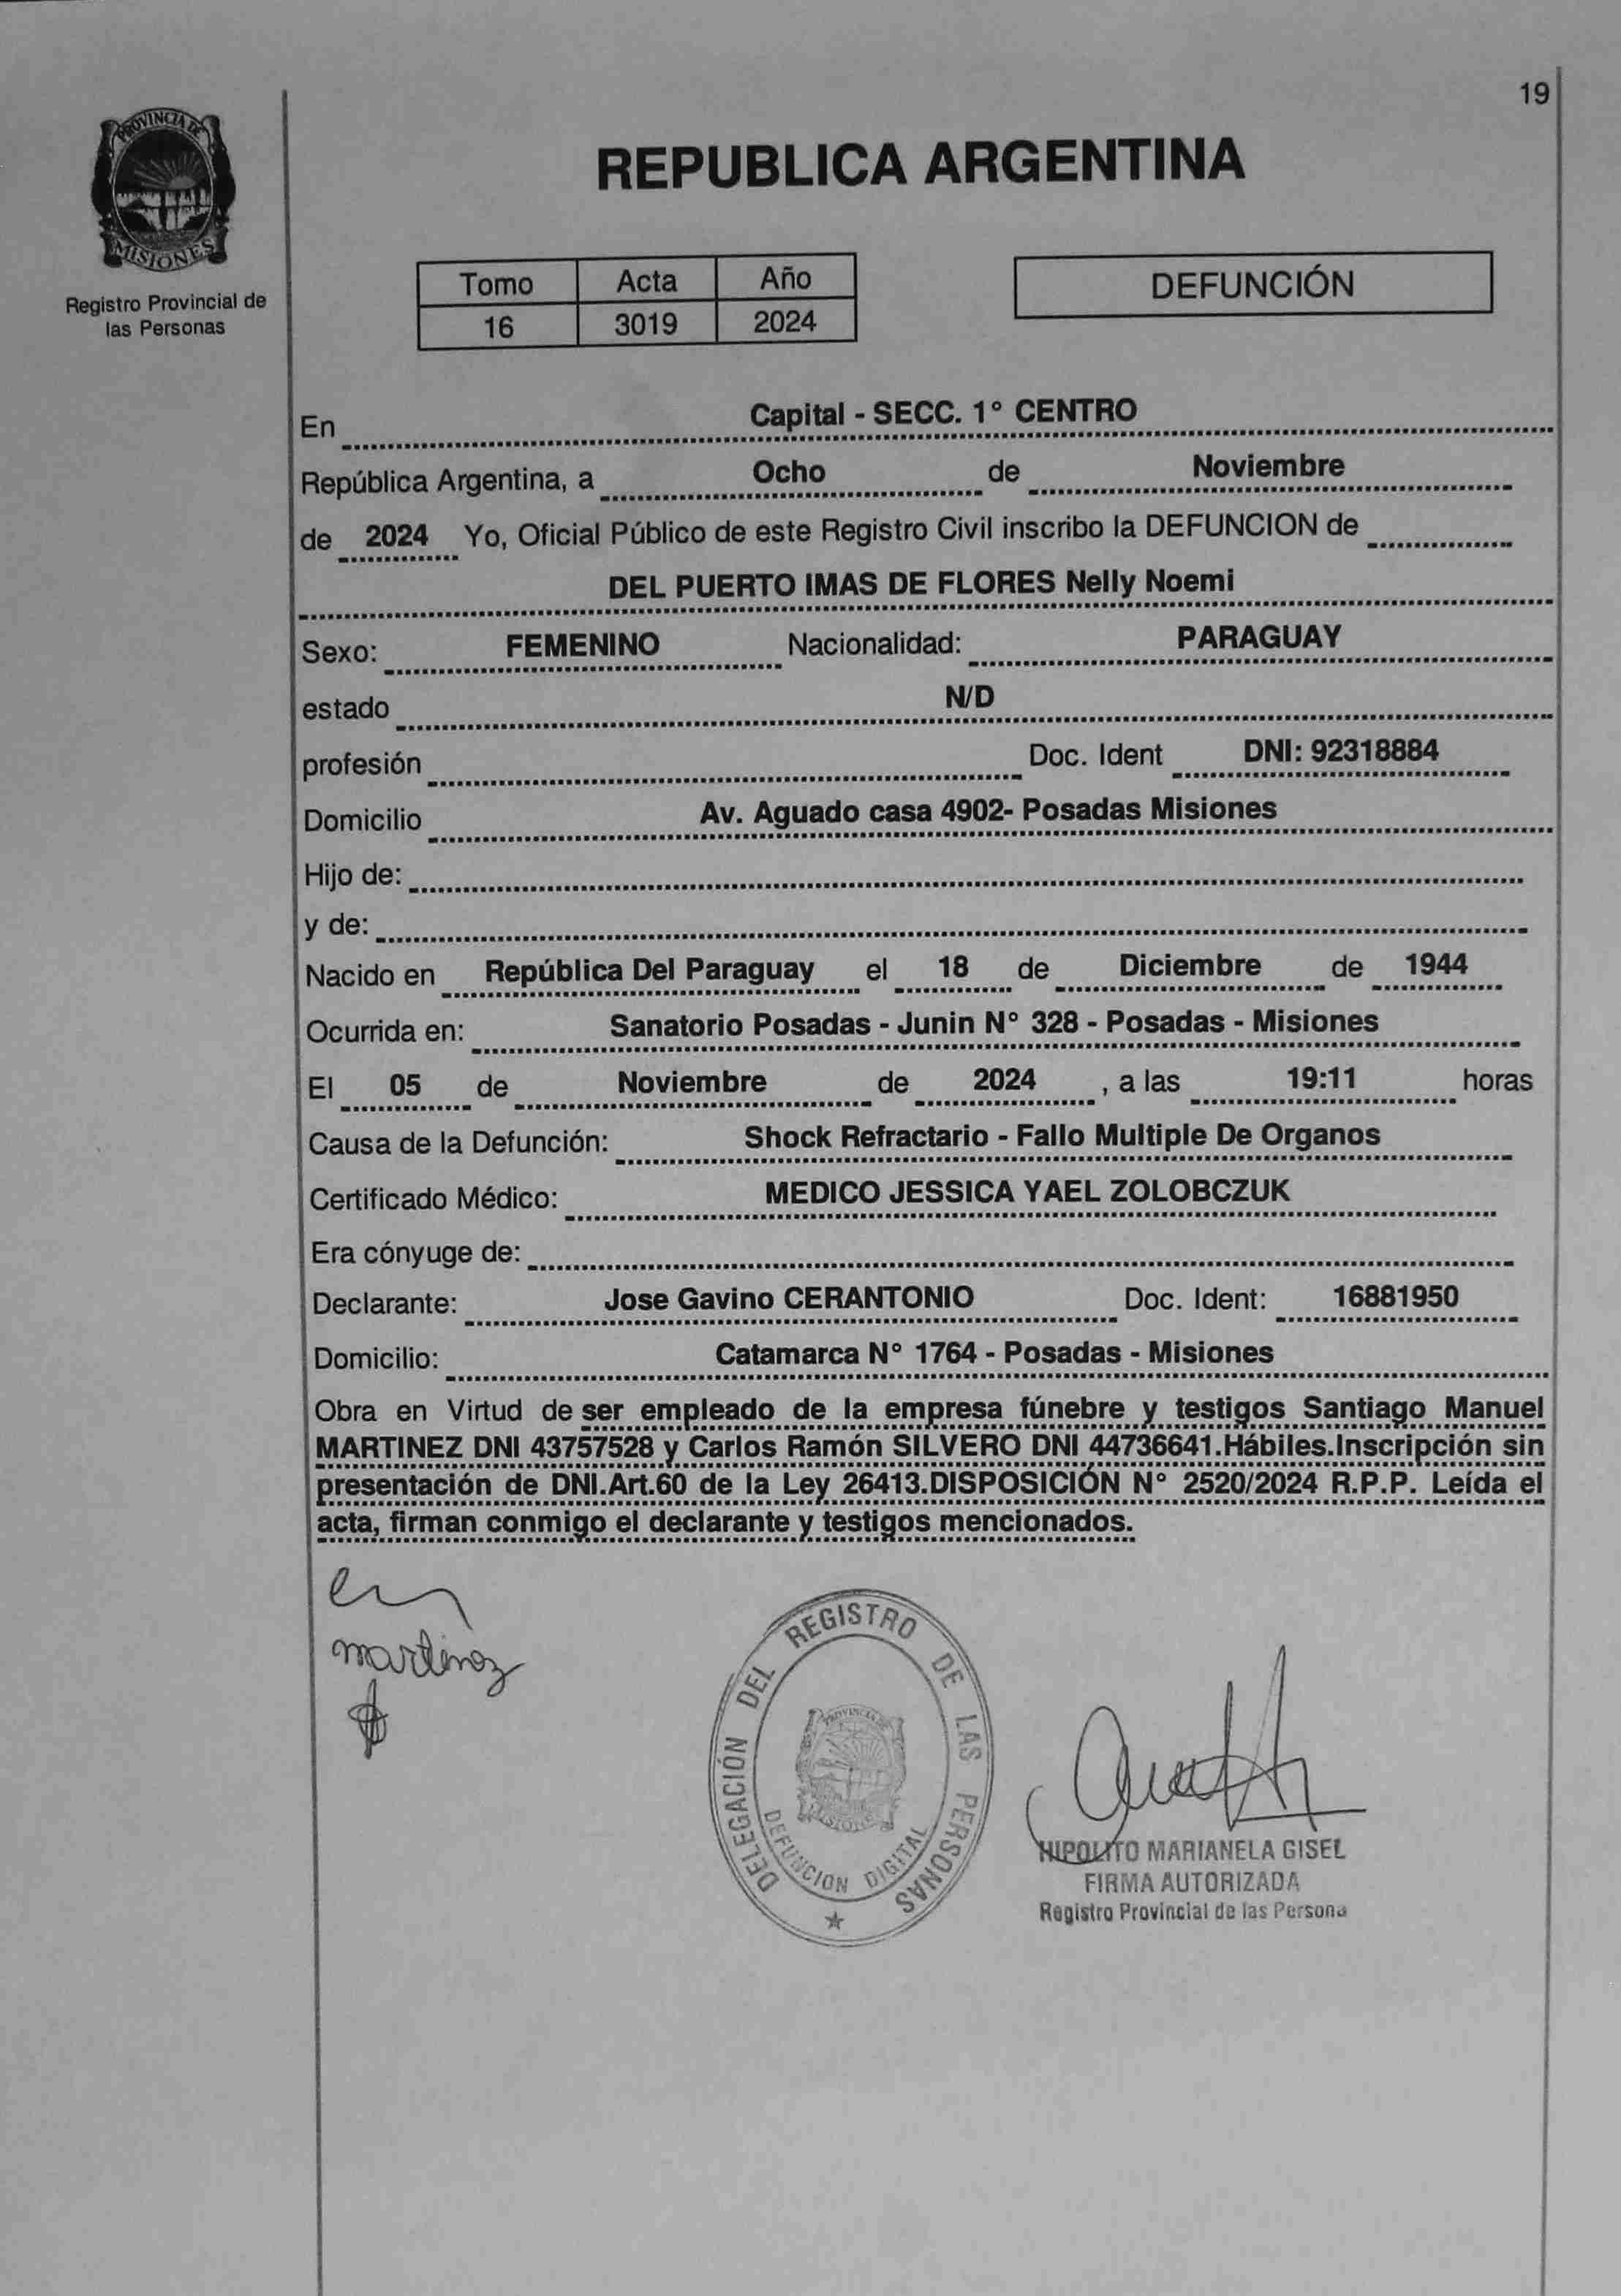 19
PROVINCIA DE
MISIONES
Registro Provincial de
las Personas
REPUBLICA ARGENTINA
Tomo Acta Año
16 3019 2024
DEFUNCIÓN
En Capital - SECC. 1° CENTRO
República Argentina, a Ocho de Noviembre
de 2024 Yo, Oficial Público de este Registro Civil inscribo la DEFUNCION de
DEL PUERTO IMAS DE FLORES Nelly Noemi
Sexo: FEMENINO Nacionalidad: PARAGUAY
estado N/D
profesión Doc. Ident DNI: 92318884
Domicilio Av. Aguado casa 4902- Posadas Misiones
Hijo de:
y de:
Nacido en República Del Paraguay el 18 de Diciembre de 1944
Ocurrida en: Sanatorio Posadas - Junin N° 328 - Posadas - Misiones
El 05 de Noviembre de 2024 , a las 19:11 horas
Causa de la Defunción: Shock Refractario - Fallo Multiple De Organos
Certificado Médico: MEDICO JESSICA YAEL ZOLOBCZUK
Era cónyuge de:
Declarante: Jose Gavino CERANTONIO Doc. Ident: 16881950
Domicilio: Catamarca N° 1764 - Posadas - Misiones
Obra en Virtud de ser empleado de la empresa fúnebre y testigos Santiago Manuel
MARTINEZ DNI 43757528 y Carlos Ramón SILVERO DNI 44736641.Hábiles.Inscripción sin
presentación de DNI.Art.60 de la Ley 26413.DISPOSICIÓN N° 2520/2024 R.P.P. Leída el
acta, firman conmigo el declarante y testigos mencionados.
martinez
DELEGACIÓN DEL REGISTRO DE LAS PERSONAS
PROVINCIA DE
MISIONES
DEFUNCION DIGITAL
HIPOLITO MARIANELA GISEL
FIRMA AUTORIZADA
Registro Provincial de las Persona